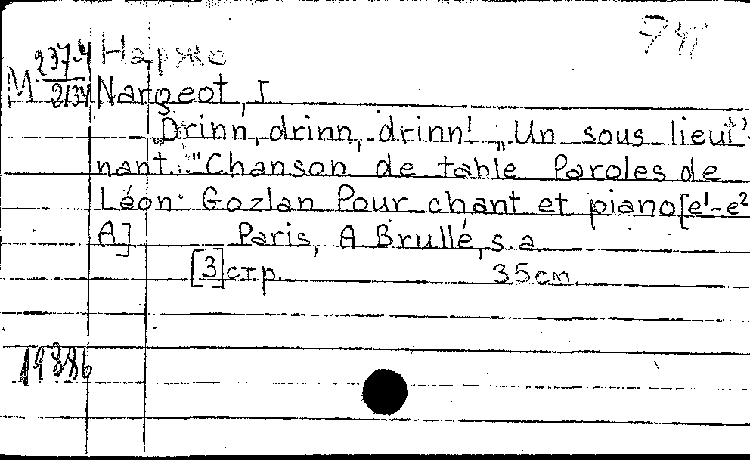 Нарже
М 237-4/2134 Nargeot, J
„Drinn, drinn, drinn! „Un sous lieut-
nant." Chanson de table Paroles de
Léon Gozlan Pour chant et piano [e¹-e²
A] Paris, A Brullé, s.a
[3] стр. 35 cm.
19386